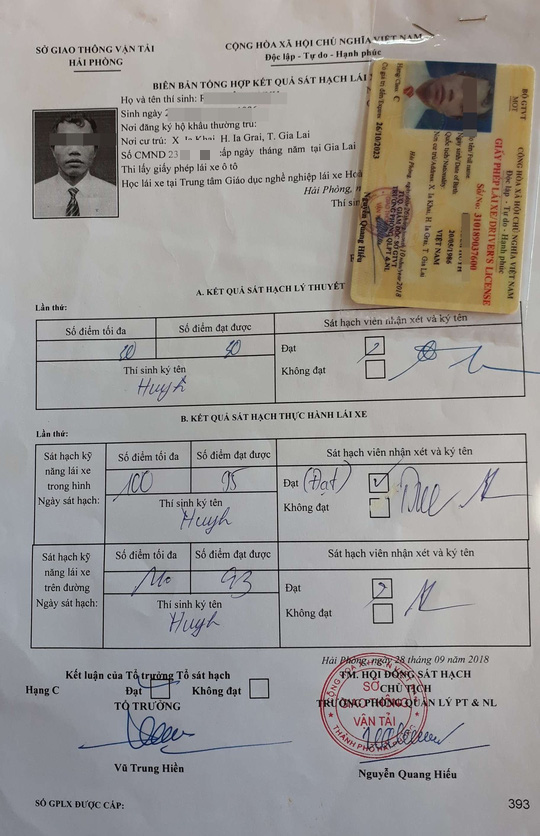 SỞ GIAO THÔNG VẬN TẢI
HẢI PHÒNG
CỘNG HÒA XÃ HỘI CHỦ NGHĨA VIỆT NAM
Độc lập - Tự do - Hạnh phúc
BIÊN BẢN TỔNG HỢP KẾT QUẢ SÁT HẠCH LÁI
Họ và tên thí sinh:
Sinh ngày
Nơi đăng ký hộ khẩu thường trú:
Nơi cư trú: X H. Ia Grai, T. Gia Lai
Số CMND 23 cấp ngày tháng năm tại Gia Lai
Thi lấy giấy phép lái xe ô tô
Học lái xe tại Trung tâm Giáo dục nghề nghiệp lái xe Hoà
Hải Phòng,
Thí sinh
BỘ GTVT
MOT
CỘNG HÒA XÃ HỘI CHỦ NGHĨA VIỆT NAM
Độc lập - Tự do - Hạnh phúc
GIẤY PHÉP LÁI XE/DRIVER'S LICENSE
Số/No: 310189037600
Họ tên/Full name:
Ngày sinh/Date of Birth: 20/05/1986
Quốc tịch/Nationality: VIỆT NAM
Nơi cư trú/Address: X. Ia Khai, H. Ia Grai, T. Gia Lai
Hải Phòng,
2018
Nguyễn Quang Hiếu
Hạng/Class: C
Có giá trị đến/Expires: 26/10/2023
A. KẾT QUẢ SÁT HẠCH LÝ THUYẾT
Lần thứ:
Số điểm tối đa Số điểm đạt được Sát hạch viên nhận xét và ký tên
30 30 Đạt
Thí sinh ký tên Không đạt
Huynh
B. KẾT QUẢ SÁT HẠCH THỰC HÀNH LÁI XE
Lần thứ:
Sát hạch kỹ năng lái xe trong hình Số điểm tối đa Số điểm đạt được Sát hạch viên nhận xét và ký tên
100 95 Đạt (Đạt)
Ngày sát hạch: Thí sinh ký tên Không đạt
Huynh
Sát hạch kỹ năng lái xe trên đường Số điểm tối đa Số điểm đạt được Sát hạch viên nhận xét và ký tên
93 Đạt
Ngày sát hạch: Thí sinh ký tên Không đạt
Huynh
Hải Phòng, ngày 28 tháng 09 năm 2018
Kết luận của Tổ trưởng Tổ sát hạch
Hạng C Đạt Không đạt
TỔ TRƯỞNG
Vũ Trung Hiền
TM. HỘI ĐỒNG SÁT HẠCH
CHỦ TỊCH
TRƯỞNG PHÒNG QUẢN LÝ PT & NL
SỞ
VẬN TẢI
Nguyễn Quang Hiếu
SỐ GPLX ĐƯỢC CẤP:
393